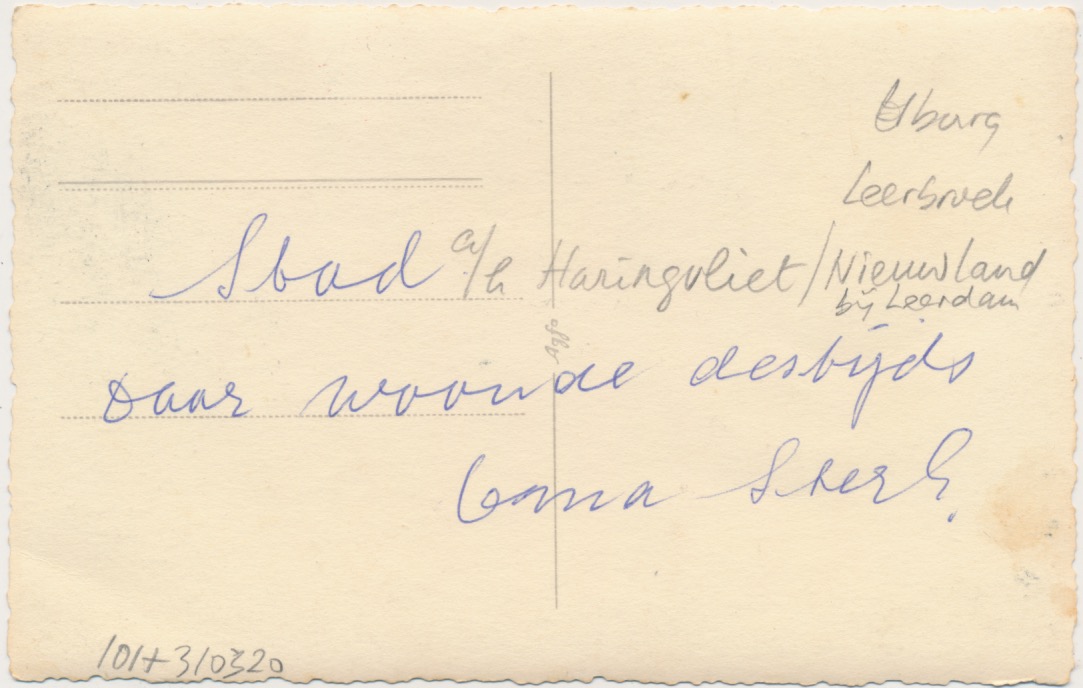 Leerbroek
Sbad a/h Haringvliet/Nieuwland
bij Leerdam
Daar woonde destijds
Oma Sterk.
101+310320